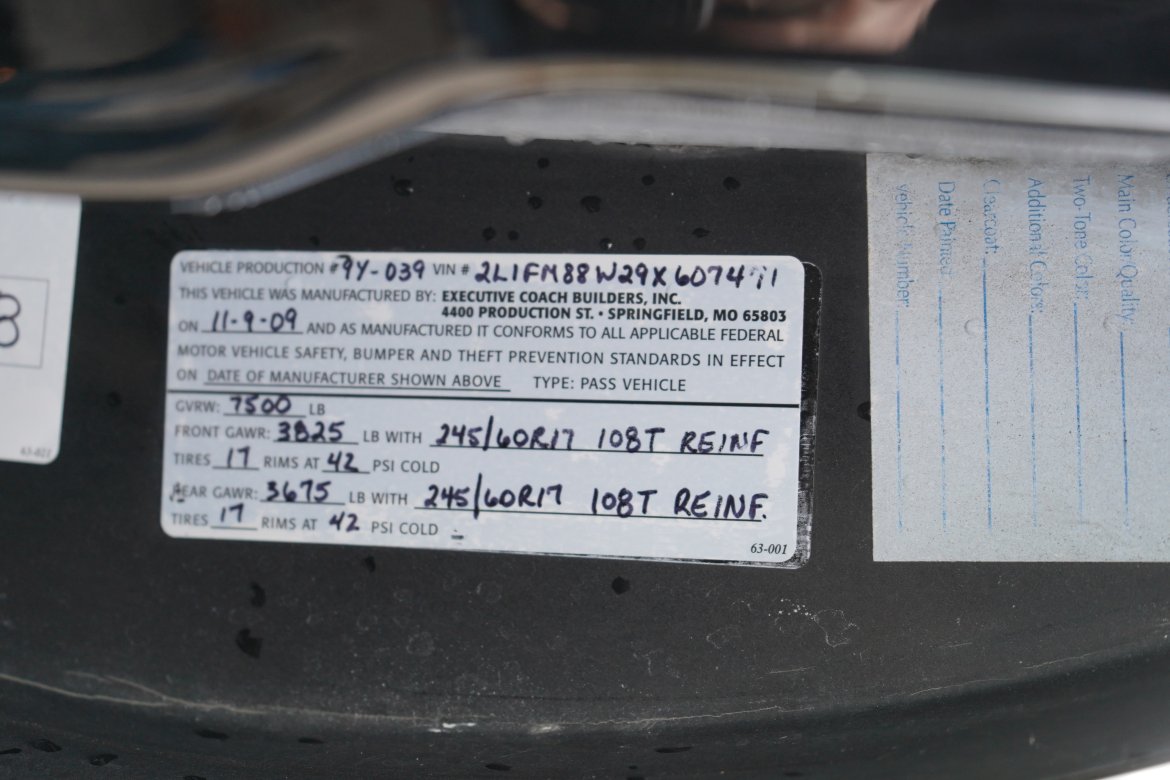 VEHICLE PRODUCTION #9Y-039 VIN # 2L1FM88W29X607471
THIS VEHICLE WAS MANUFACTURED BY: EXECUTIVE COACH BUILDERS, INC.
4400 PRODUCTION ST. • SPRINGFIELD, MO 65803
ON 11-9-09 AND AS MANUFACTURED IT CONFORMS TO ALL APPLICABLE FEDERAL
MOTOR VEHICLE SAFETY, BUMPER AND THEFT PREVENTION STANDARDS IN EFFECT
ON DATE OF MANUFACTURER SHOWN ABOVE TYPE: PASS VEHICLE
GVRW: 7500 LB
FRONT GAWR: 3825 LB WITH 245/60R17 108T REINF
TIRES 17 RIMS AT 42 PSI COLD
REAR GAWR: 3675 LB WITH 245/60R17 108T REINF.
TIRES 17 RIMS AT 42 PSI COLD
63-001
Main Color Quality
Two-Tone Color:
Additional Colors:
Clearcoat:
Date Painted
vehicle Number